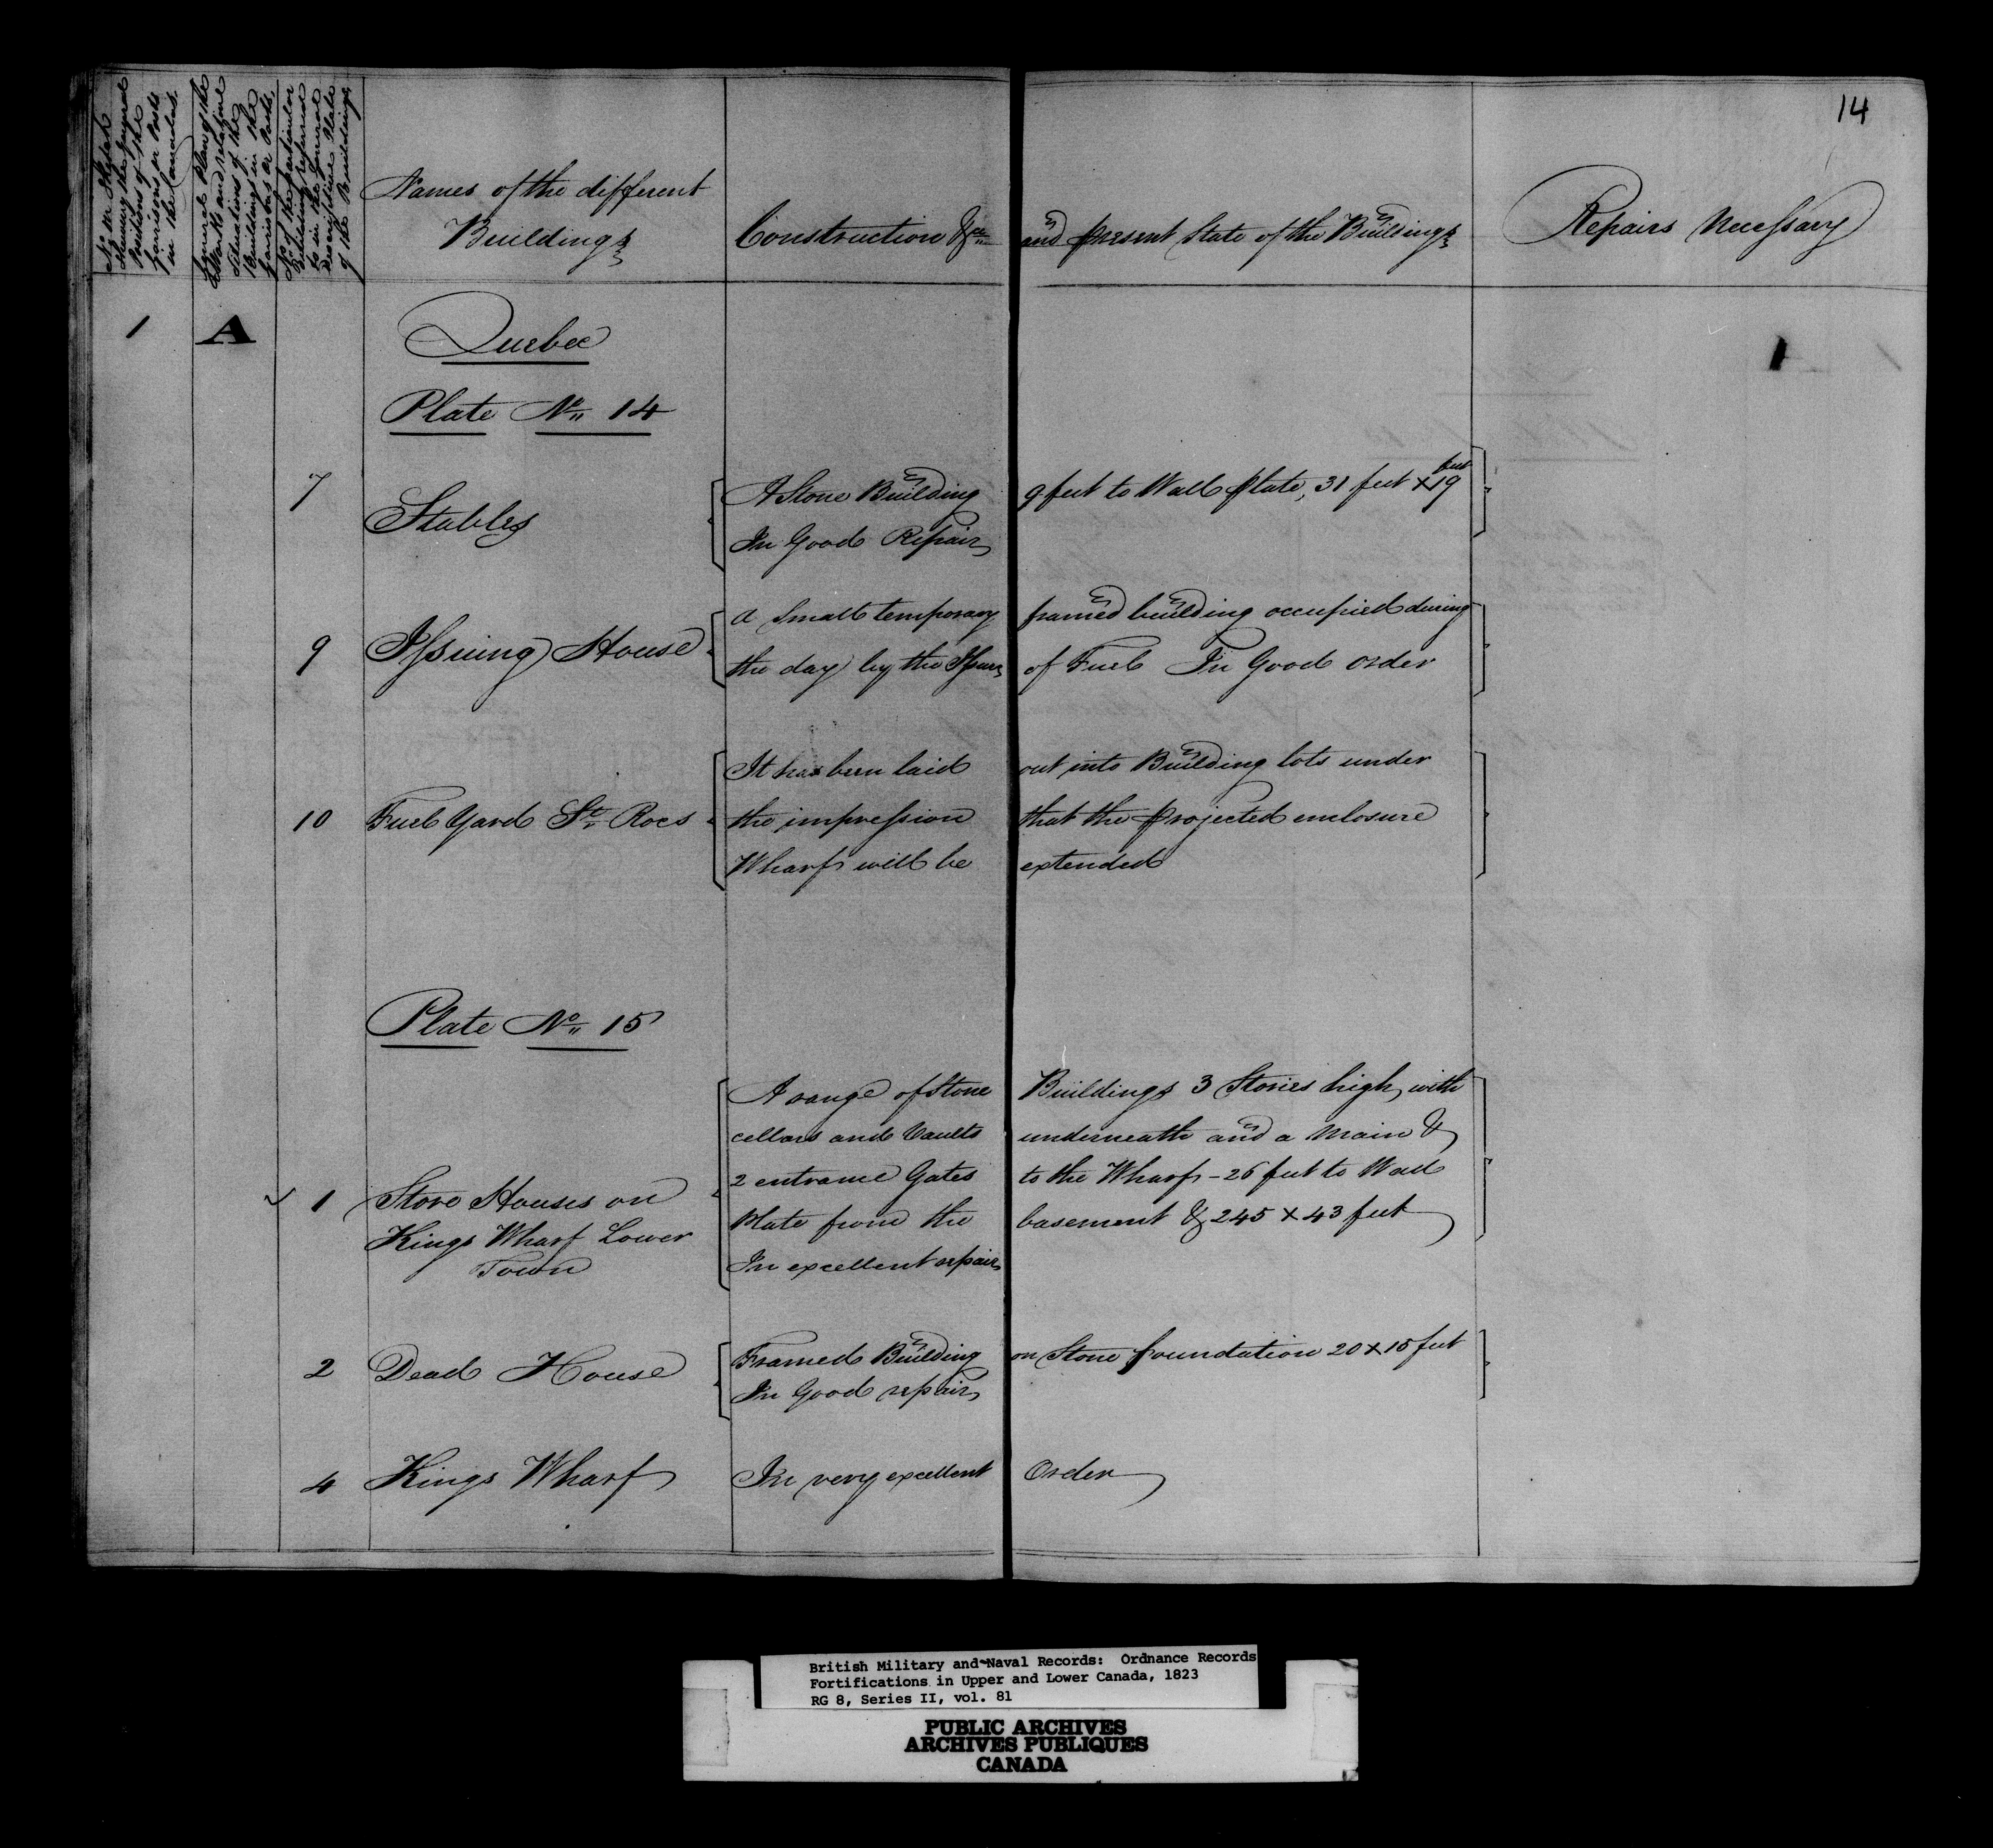 14
No. or Sketch
Shewing the general
Positions of the
Garrisons or Posts
in the Canadas.
General Plan of the
Works and relative
Situations of the
Buildings in the
Garrisons or Posts.
No. of the particular
Building referred
to in the General
Descriptive Plate
of the Buildings
Names of the different
Buildings
Construction &c and present State of the Buildings
Repairs Necessary
1 A Quebec
Plate No 14
7 Stables
A Stone Building 9 feet to Wall Plate, 31 feet x 19 feet
In Good Repair
9 Issuing House
a Small temporary framed building occupied during
the day by the Issuer of Fuel In Good order
10 Fuel Yard St. Rocs
It has been laid out into Building lots under
the impression that the projected enclosure
Wharf will be extended
Plate No 15
1 Store Houses on
Kings Wharf Lower
Town
A range of Stone Buildings 3 Stories high, with
cellars and Vaults underneath and a main &
2 entrance Gates to the Wharf - 26 feet to Wall
Plate from the basement & 245 x 43 feet
In excellent repair
2 Dead House
Framed Building on Stone foundation 20 x 15 feet
In Good repair
4 Kings Wharf
In very excellent Order
British Military and Naval Records: Ordnance Records
Fortifications in Upper and Lower Canada, 1823
RG 8, Series II, vol. 81
PUBLIC ARCHIVES
ARCHIVES PUBLIQUES
CANADA